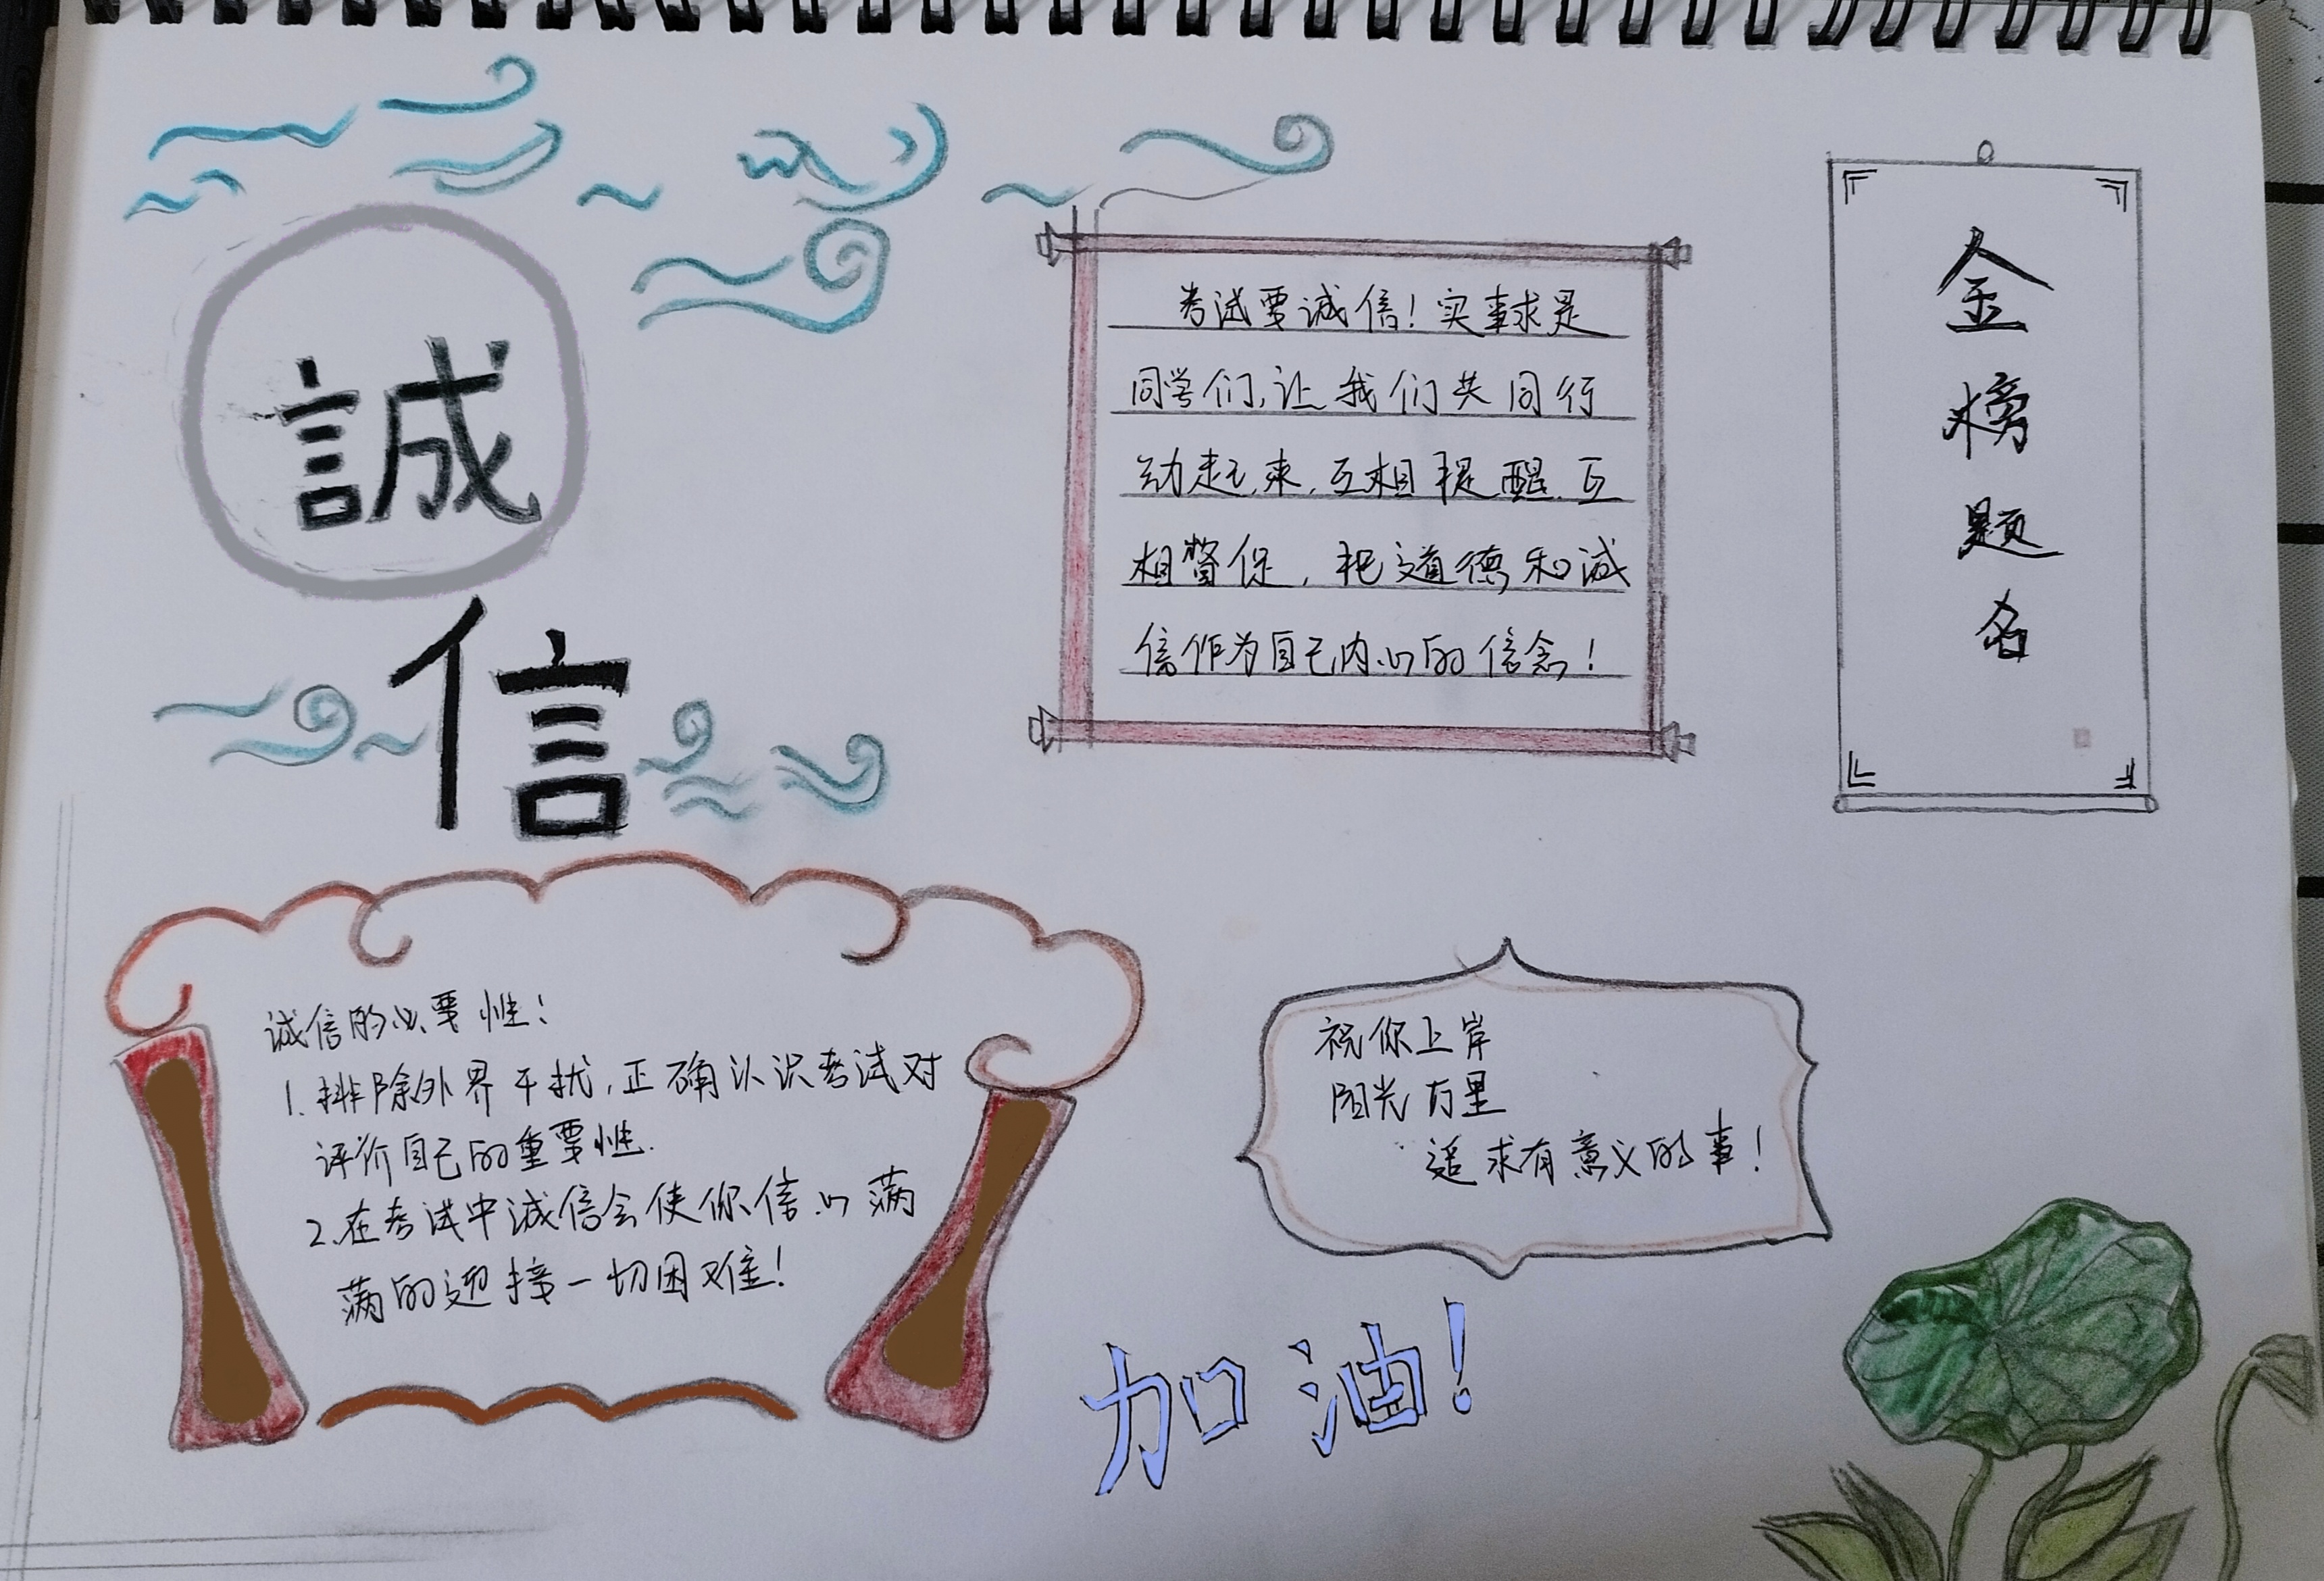 誠
信
考试要诚信！实事求是
同学们，让我们共同行
动起来，互相提醒.互
相督促，把道德和诚
信作为自己内心的信念！
金
榜
题
名
诚信的必要性！
1.排除外界干扰，正确认识考试对
评价自己的重要性.
2.在考试中诚信会使你信心满
满的迎接一切困难！
祝你上岸
阳光万里
追求有意义的事！
加油！